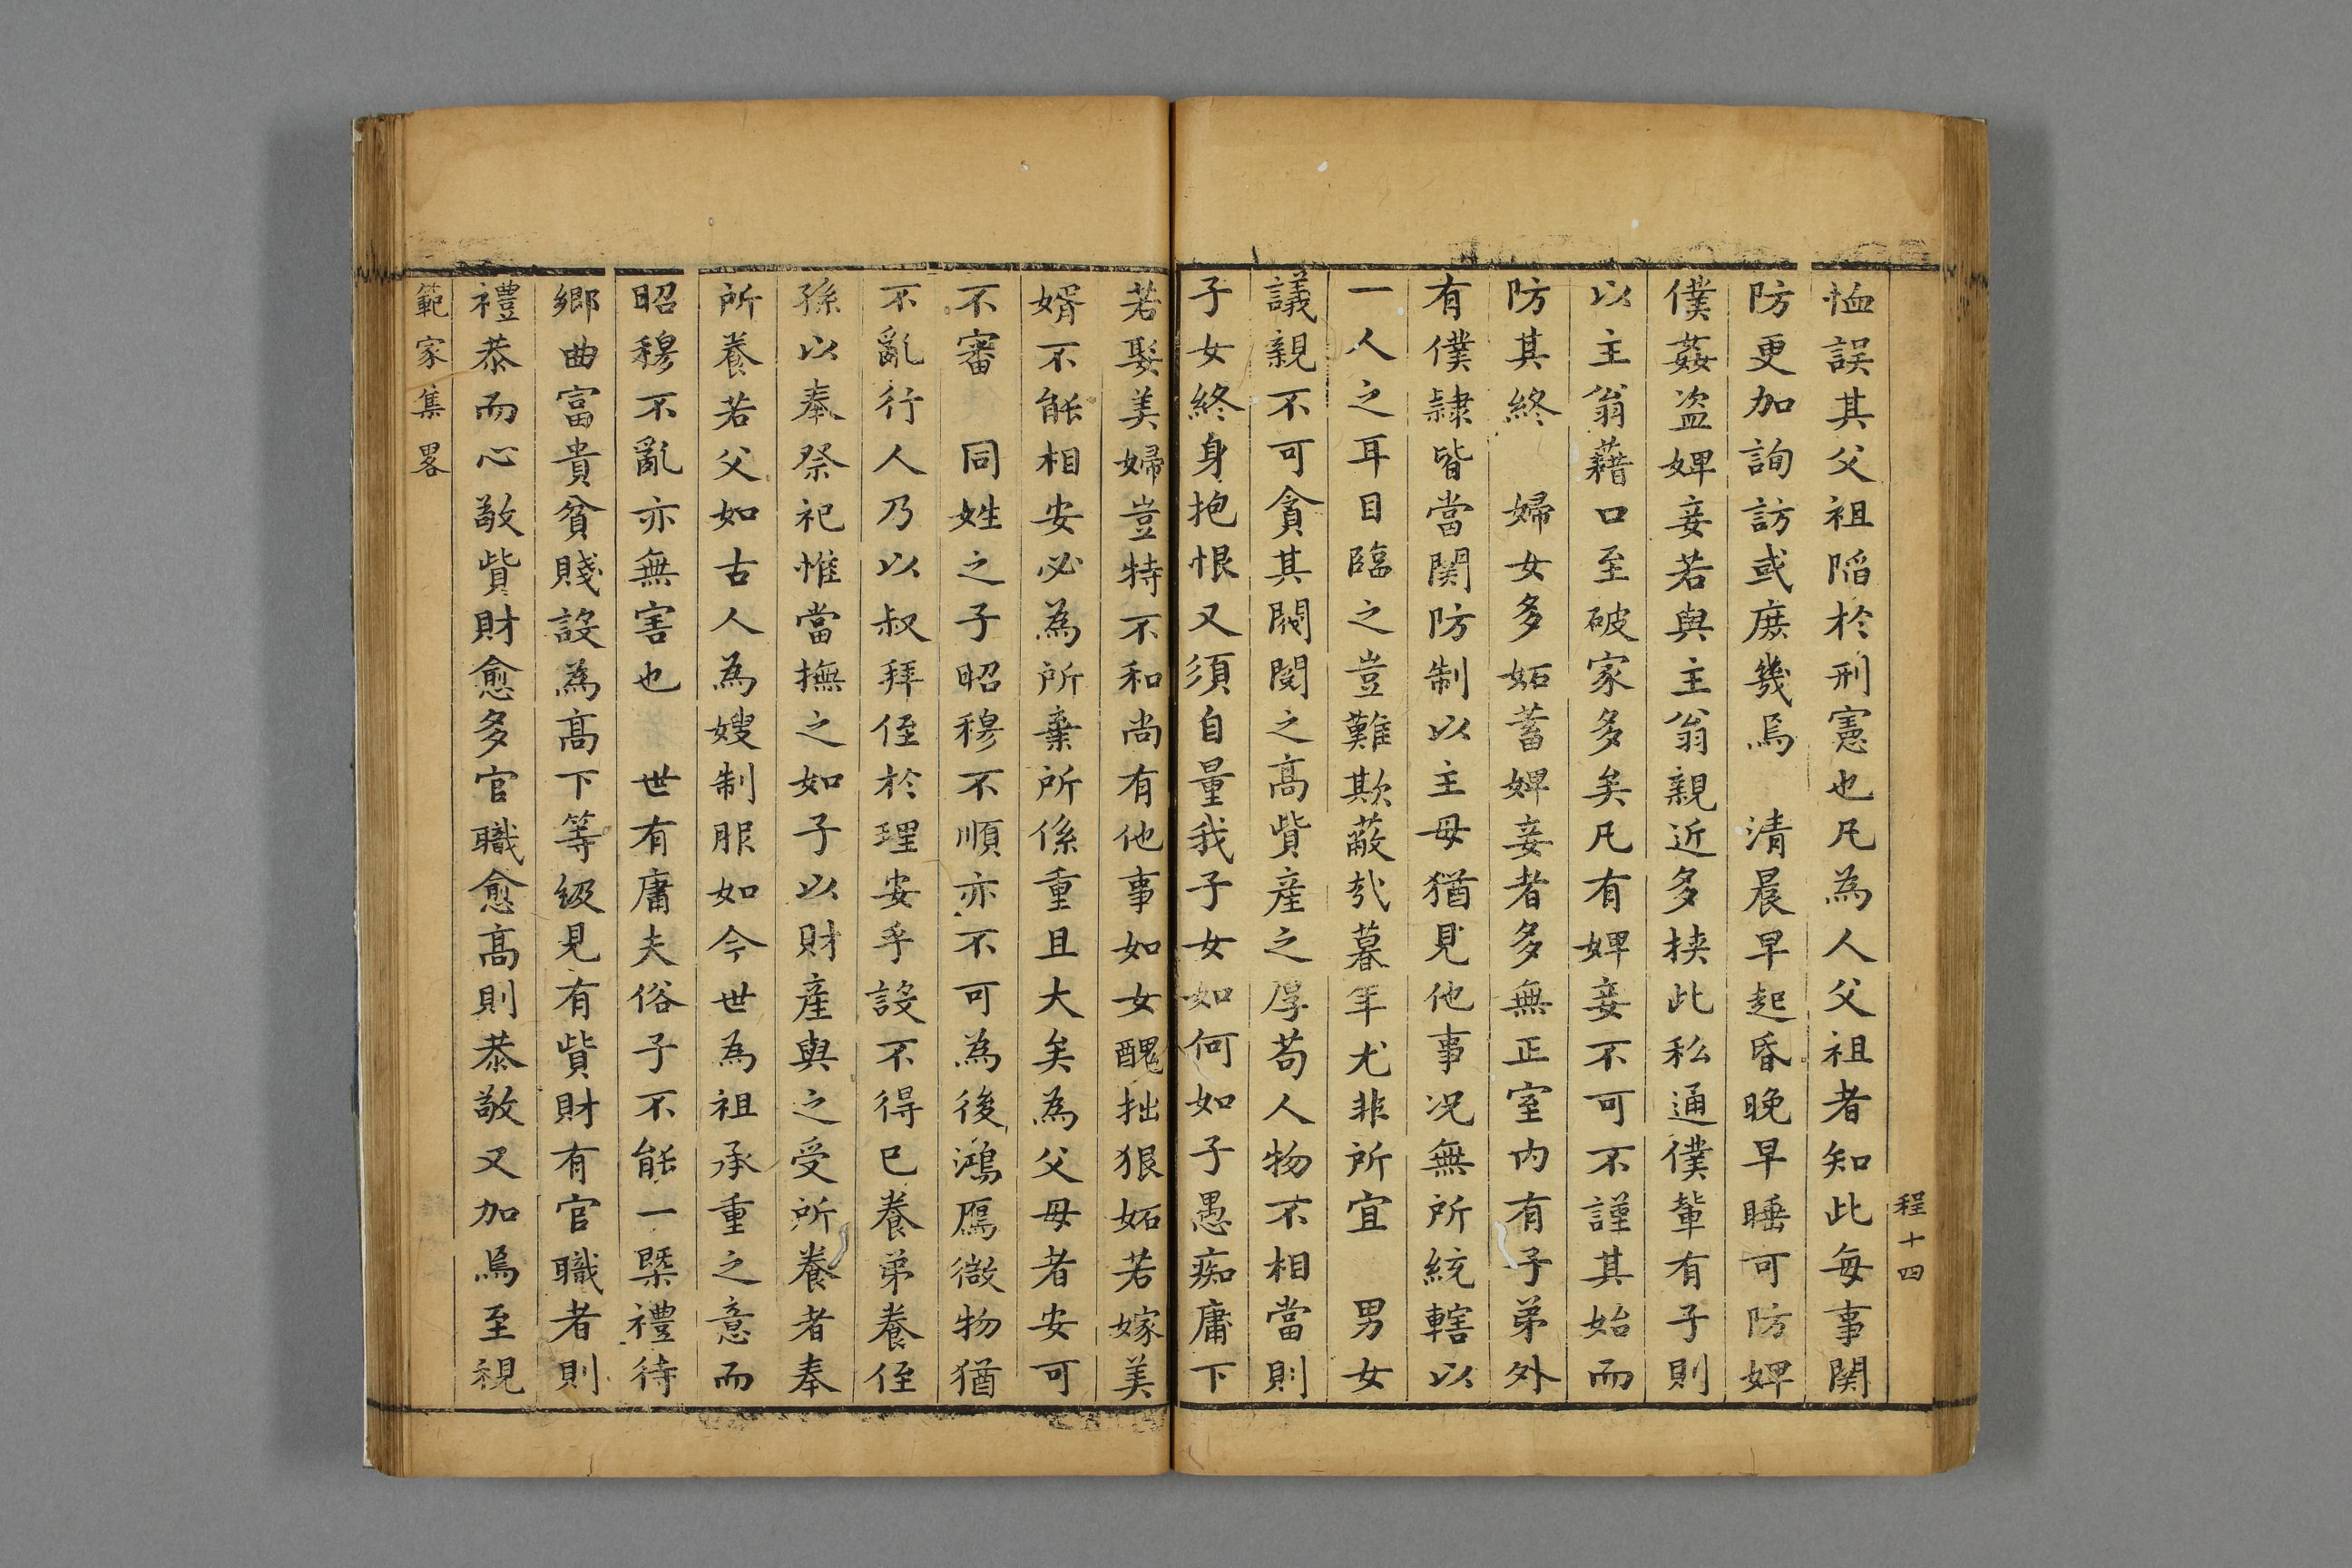 程十四
恤誤其父祖陷於刑憲也凡為人父祖者知此每事関
防更加詢訪或庶幾焉　清晨早起昏晚早睡可防婢
僕姦盗婢妾若與主翁親近多挟此私通僕軰有子則
以主翁藉口至破家多矣凡有婢妾不可不謹其始而
防其終　婦女多妬蓄婢妾者多無正室内有子弟外
有僕隷皆當関防制以主母猶見他事况無所統轄以
一人之耳目臨之豈難欺蔽㢤暮年尤非所宜　男女
議親不可貪其閥閱之髙貲産之厚苟人物不相當則
子女終身抱恨又須自量我子女如何如子愚痴庸下
若娶美婦豈特不和尚有他事如女醜拙狠妬若嫁美
婿不能相安必為所棄所係重且大矣為父母者安可
不審　同姓之子昭穆不順亦不可為後鴻鴈微物猶
不亂行人乃以叔拜侄於理安乎設不得已養弟養侄
孫以奉祭祀惟當撫之如子以財産與之受所養者奉
所養若父如古人為嫂制服如今世為祖承重之意而
昭穆不亂亦無害也　世有庸夫俗子不能一槩禮待
鄉曲富貴貧賤設為髙下等級見有貲財有官職者則
禮恭而心敬貲財愈多官職愈髙則恭敬又加焉至視
範家集畧